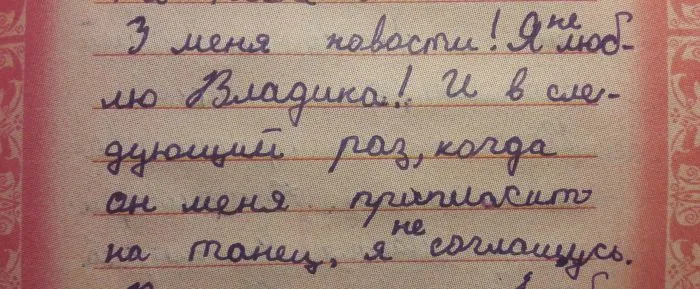 З меня новости! Я не люб-
лю Владика! И в сле-
дующий раз, когда
он меня пригласит
на танец, я не соглашусь.